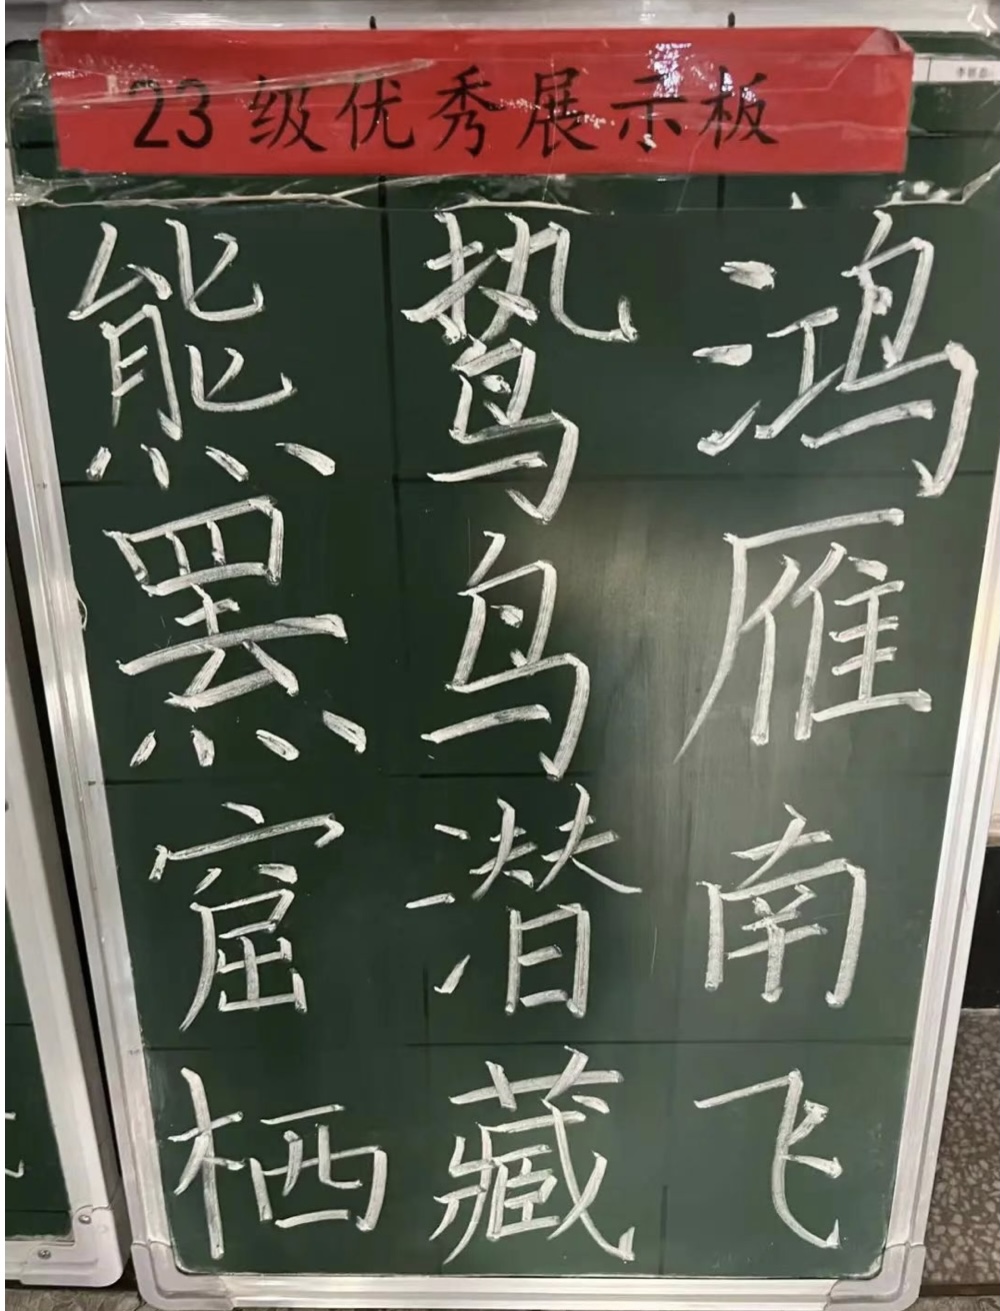 23级优秀展示板
鸿雁南飞
鸷鸟潜藏
熊罴窟栖